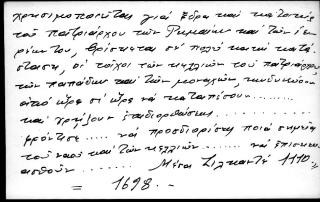 χρησιμοποιεῖται γιά ἕδρα καί κατοικία
τοῦ πατριάρχου τῶν Ρωμαίων καί τῶν
βρίσκεται σέ πολύ κακή κατά-
σταση, οἱ τοῖχοι τῶν κελλιῶν τοῦ πατριάρχου
τῶν παπάδων καί τῶν μοναχῶν, κινδυνεύουν
ἀπό ὥρα σέ ὥρα νά καταπέσουν........
καί χρήζουν ἐπιδιορθώσεως..........
φρόντισε..... νά προσδιορίσης ποιά σημεῖα
τοῦ ναοῦ καί τῶν κελλιῶν........ νά ἐπισκευ-
ασθοῦν........... 1110.
= 1698.-